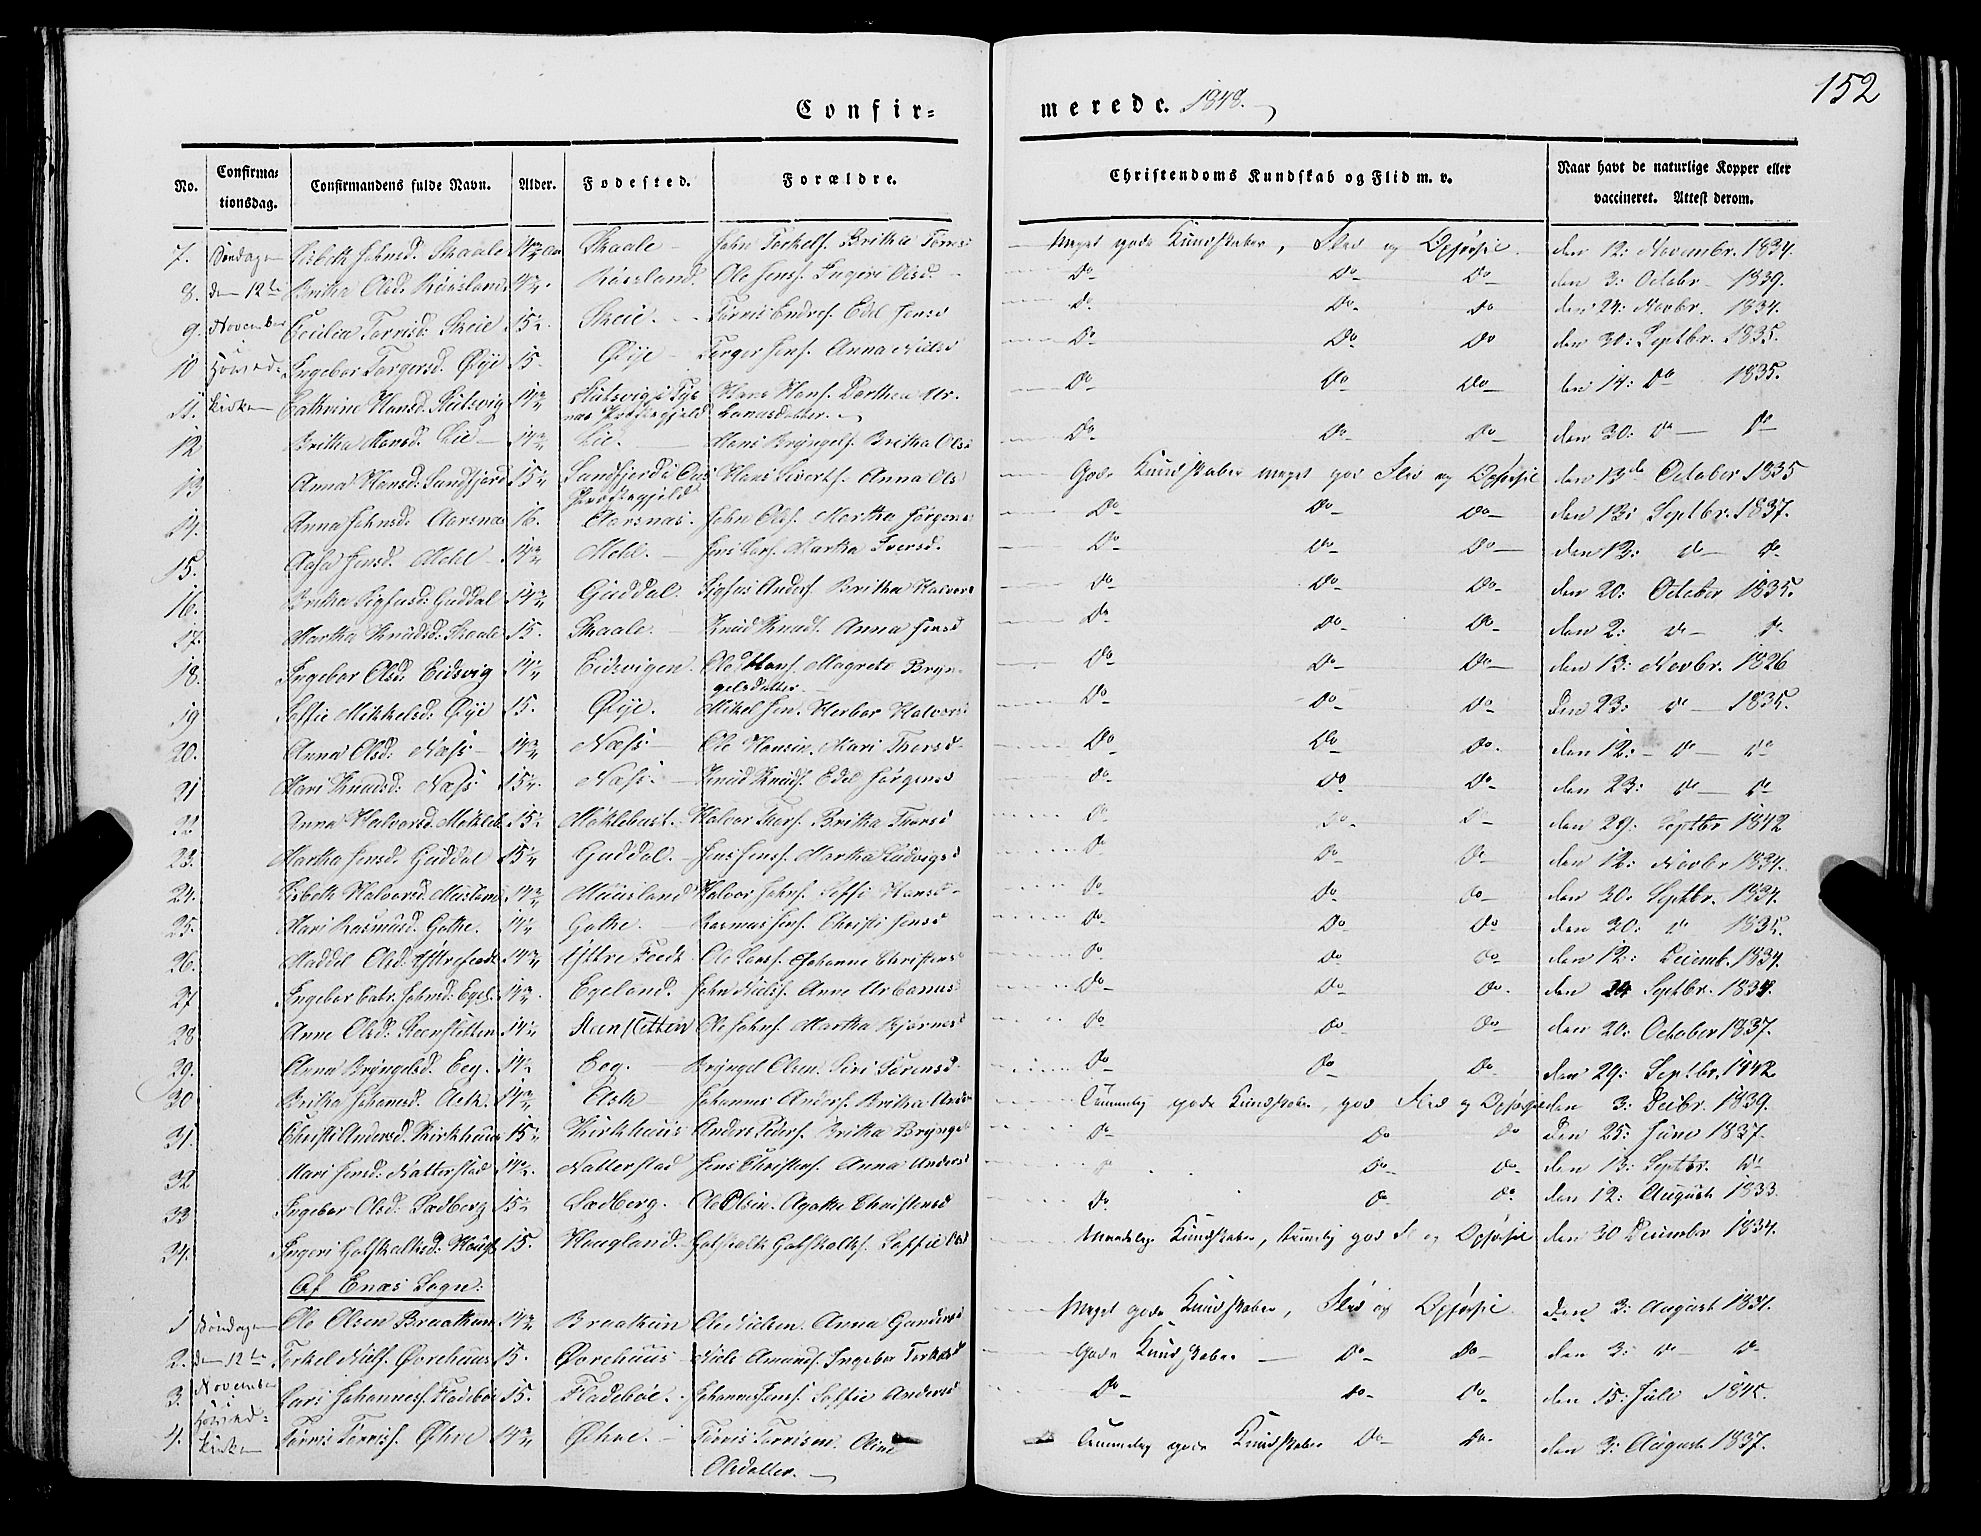 152
Confir= merede. 1848.
No. Confirma= tionsdag. Confirmandens fulde Navn. Alder. Fodested. Forældre. Christendoms Kundskab og Flid m. v. Naar havt de naturlige Kopper eller vaccineret. Attest derom.
7. Søndagen Lisbeth Johnsd. Skaale Skaale John Torkels. Britha Meget gode Kundskaber, Flid og Opførsel den 12: Novembr. 1834.
8. den 12te Britha Olsd. Røssland Røssland. Ole Jens. Ingere Olsd. Do Do Do den 3: Octobr 1839.
9. November Cecilia Torrisd: Skeie 15 Skeie. Torris Endres. Edel Jensd Do Do Do den 24: Novbr. 1834.
10 Hoved= Ingebor Torgersd. Øije 15. Øije Torger Jens. Anna Nilsd Do Do Do den 30: Septbr. 1835.
11. kirken Cathrine Hansd. 14 i Tys Hans Hans. Dorthea Ur- Do Do Do den 14: Do 1835.
næs Præstegjeld banusdatter.
12 Britha Hansd. Lie 14 Lie. Hans Brÿngels. Britha Olsd Do Do Do den 30: Do Do
13 Anna Hansd. Sundfjord 15 Sundfjord i Hans Siverts. Anna Ols Gode Kundskaber meget god Flid og Opførsel den 13de October 1835
Præstegjeld
14. Anna Johnsd. Aarsnæs 16. Aarsnæs. John Ols. Martha Jørgens Do Do Do den 13: Septbr. 1837.
15. Jensd. Mehl 14 Mehl. Jens Lars. Martha Iversd. Do Do Do den 13: do do
16. Britha Sigfusd: Guddal 14 Guddal. Sigfus Anders. Britha Halvors Do Do Do den 20: October 1835.
17. Martha Knudsd: Skaale 15. Skaale. Knud Knuds. Anna Jensd Do Do Do den 2: do do
18. Ingebor Olsd. Eidsvig 14 Eidsvigen. Ole Hans. Magrete Bryn- Do Do Do den 13: Novbr. 1826
gelsdatter.
19 Soffie Mikkelsd: Øije 15. Øije. Mikel Jen. Herbor Halvors Do Do Do Den 23: do 1835.
20. Anna Olsd: Næss 14 Næss Ole Hansen. Mari Thorsd Do Do Do. den 12: do do
21 Mari Knudsd: Næss 15 Næss. Knud Knuds. Edel Jørgensd do Do Do den 23: do do
22 Anna Halvorsd. Møkleb 15 Møklebust. Halvor Thors. Britha Thorsd do Do do den 29: Septbr 1842
23. Martha Jensd. Guddal 15 Guddal. Jens Jens. Martha Ludvigsd do Do Do den 12: Novbr 1834.
24. Lisbeth Halvorsd. Muusland 14 Muusland Halvor Johns. Soffi Hansd do Do Do den 30: Septbr. 1834.
25. Mari Rasmusd. Gothe. 14 Gothe. Rasmus Jens. Christi Jensd do Do Do den 30: do 1835.
26. Maddel Olsd. Yttre 14 Yttre Ole Lars. Johanne Christens do Do Do den 12: Decemb. 1834.
27 Ingebor Johnsd: Egel. 14 Egeland. John Niels. Anne Urbanus do Do Do. den 24 Septbr. 1834.
28 Anne Olsd: Steensletten 14 Stensletten Ole Johns. Martha Bjørnesd do Do Do den 20: October 1837.
29. Anna Brÿngelsd. Eeg. 14 Eeg. Brÿngel Olsen. Siri Sørensd. do Do Do den 29: Septbr. 1842
30 Britha Johannsd. Ask. 14 Ask Johannes Anders. Britha Anders Temmelig gode Kundskaber, god Flid og Opførsel den 3: Decbr. 1839.
31. Christi Andersd. Kirkhuus 15 Kirkhuus Anders Peders. Britha Brÿngels do Do Do Den 25: Juni 1837.
32 Mari Jensd: Natterstad 14 Natterstad Jens Christens. Anna Anders do Do Do den 13: Septbr. Do
33 Ingebor Olsd: Sædberg 15 Sædberg. Ole Olsen. Agatha Christensd Do. Do Do den 12: August 1833.
34. Ingeri Gotskalksd: Haugl. 15. Haugland. Gotskalk Gotskalks. Soffie Maadelige Kundskaber, temmelig god Fl og Opførsel den 30 December 1834.
Af Enæs Sogn:
1 Søndagen Ole Olsen Braathun 14 Braathun Ole Nielsen. Anna Gunders Meget gode Kundskaber, Flid og Opførsel. Den 3: August 1837.
2. den 12te Torkel Niels. Øvrehuus 15. Øvrehuus Niels Amunds. Ingebor Torkelsd Gode Kundskaber Do Do den 3: do do
3. November Lars Johannes. Fladebøe 15. Fladebøe. Johannes Jens. Soffie Andersd Do Do Do den 15: Juli 1845.
4. Hoved= kirken Torris Torris. Øhve 14 Øhve. Torris Torrisen. Oline Temmelig gode Kundskaber Do Do. den 3: August 1837.
Olsdatter.